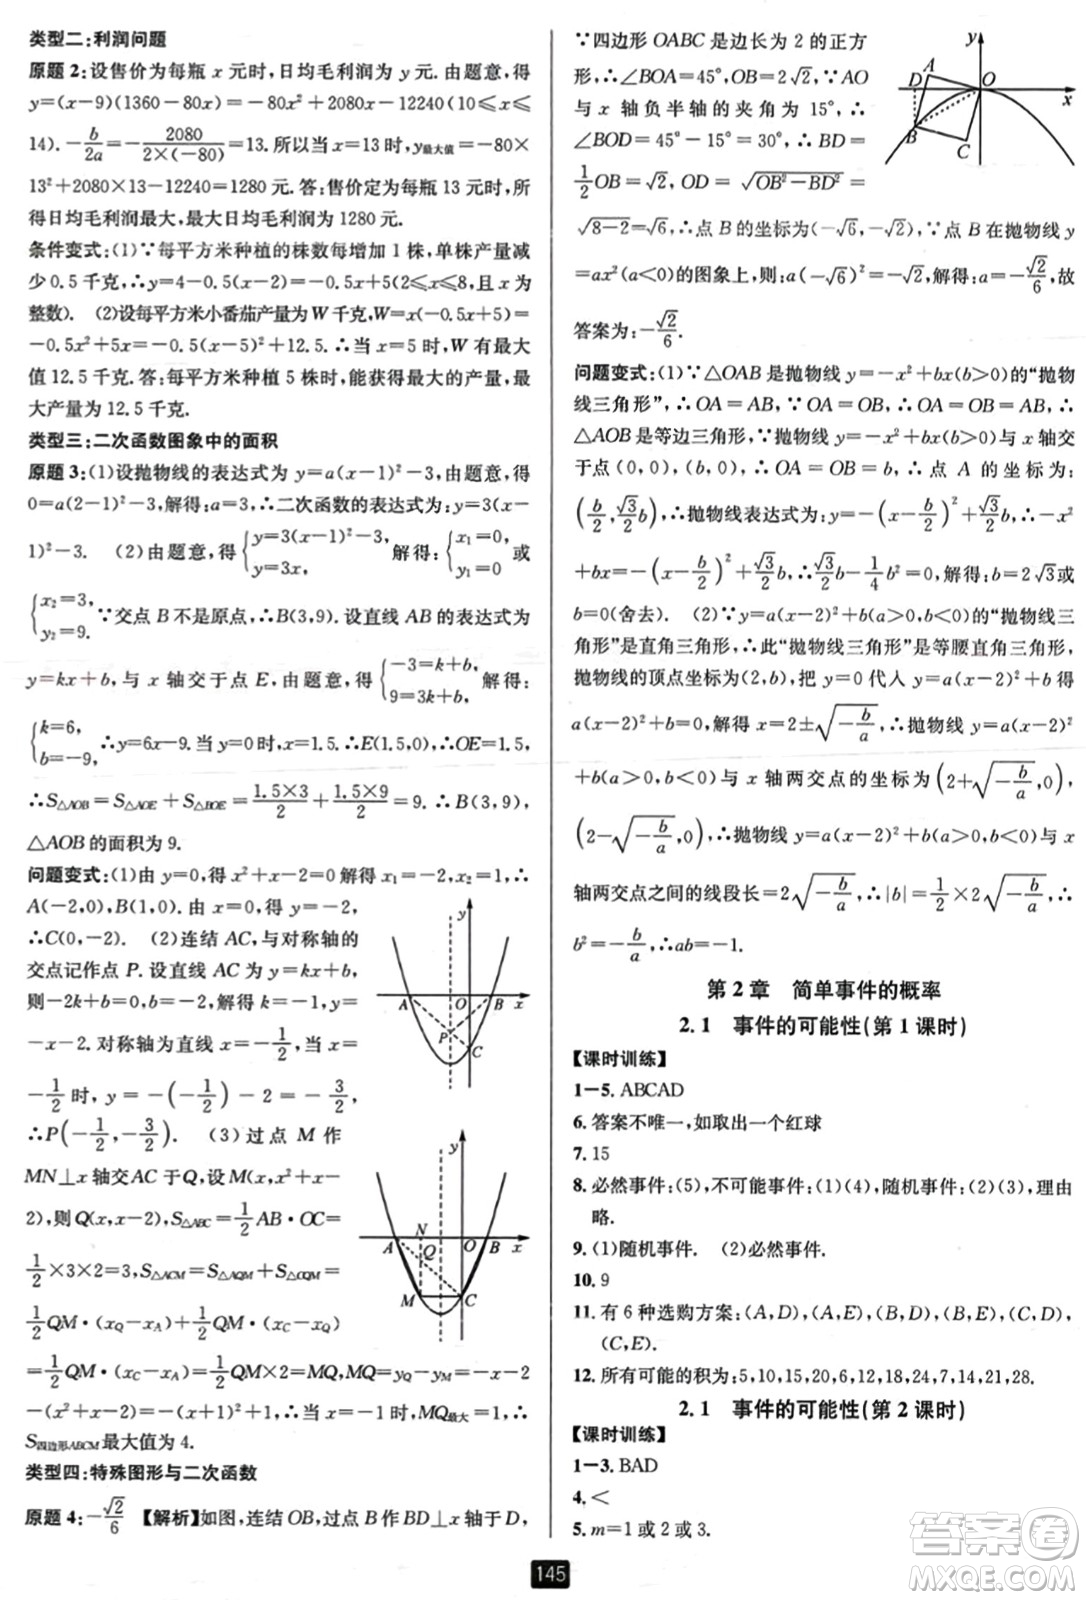 类型二:利润问题
原题 2:设售价为每瓶 x 元时,日均毛利润为 y 元.由题意,得
y=(x-9)(1360-80x)=-80x²+2080x-12240(10≤x≤
14).-b/2a=-2080/(2×(-80))=13.所以当 x=13 时,y最大值=-80×
13²+2080×13-12240=1280 元.答:售价定为每瓶 13 元时,所
得日均毛利润最大,最大日均毛利润为 1280 元.
条件变式:(1)∵每平方米种植的株数每增加 1 株,单株产量减
少 0.5 千克,∴y=4-0.5(x-2)=-0.5x+5(2≤x≤8,且 x 为
整数). (2)设每平方米小番茄产量为 W 千克,W=x(-0.5x+5)=
-0.5x²+5x=-0.5(x-5)²+12.5.∴当 x=5 时,W 有最大
值 12.5 千克.答:每平方米种植 5 株时,能获得最大的产量,最
大产量为 12.5 千克.
类型三:二次函数图象中的面积
原题 3:(1)设抛物线的表达式为 y=a(x-1)²-3,由题意,得
0=a(2-1)²-3,解得:a=3,∴二次函数的表达式为:y=3(x-
1)²-3. (2)由题意,得{y=3(x-1)²-3, y=3x, 解得:{x₁=0, y₁=0
{x₂=3, y₂=9. ∵交点 B 不是原点,∴B(3,9).设直线 AB 的表达式为
y=kx+b,与 x 轴交于点 E,由题意,得{-3=k+b, 9=3k+b, 解得:
{k=6, b=-9, ∴y=6x-9.当 y=0 时,x=1.5.∴E(1.5,0),∴OE=1.5,
∴S△AOB=S△AOE+S△BOE=1.5×3/2+1.5×9/2=9.∴B(3,9),
△AOB 的面积为 9.
问题变式:(1)由 y=0,得 x²+x-2=0 解得 x₁=-2,x₂=1,∴
A(-2,0),B(1,0).由 x=0,得 y=-2,
∴C(0,-2). (2)连结 AC,与对称轴的
交点记作点 P.设直线 AC 为 y=kx+b,
则 -2k+b=0,b=-2,解得 k=-1,∴y=
-x-2.对称轴为直线 x=-1/2,当 x=
-1/2时,y=-(-1/2)-2=-3/2,
∴P(-1/2,-3/2). (3)过点 M 作
MN⊥x 轴交 AC 于 Q,设 M(x,x²+x-
2),则 Q(x,-x-2),S△ABC=1/2AB·OC=
1/2×3×2=3,S△ACM=S△AQM+S△CQM=
1/2QM·(xQ-xA)+1/2QM·(xC-xQ)
=1/2QM·(xC-xA)=1/2QM×2=MQ,MQ=yQ-yM=-x-2
-(x²+x-2)=-x²-2x=-(x+1)²+1.∴当 x=-1 时,MQ最大=1,∴
S四边形ABCM最大值为 4.
类型四:特殊图形与二次函数
原题 4:-√2/6 【解析】如图,连结 OB,过点 B 作 BD⊥x 轴于 D,
y
A
O
B
x
P
C
y
N
A
Q
O
B
x
M
C
∵四边形 OABC 是边长为 2 的正方
形,∴∠BOA=45°,OB=2√2,∵AO
与 x 轴负半轴的夹角为 15°,∴
∠BOD=45°-15°=30°,∴BD=
1/2OB=√2,OD=√(OB²-BD²)=
√(8-2)=√6,∴点 B 的坐标为(-√6,-√2),∵点 B 在抛物线 y
=ax²(a<0)的图象上,则:a(-√6)²=-√2,解得:a=-√2/6,故
答案为:-√2/6.
y
D
A
O
x
B
C
问题变式:(1)∵△OAB 是抛物线 y=-x²+bx(b>0)的“抛物
线三角形”,∴OA=AB,∵OA=OB,∴OA=OB=AB,∴
△OAB 是等边三角形,∵抛物线 y=-x²+bx(b>0)与 x 轴交
于点(0,0)和点(b,0),∴OA=OB=b,∴点 A 的坐标为:
(b/2,√3/2b).∴抛物线表达式为:y=-(x-b/2)²+√3/2b,∴-x²
+bx=-(x-b/2)²+√3/2b,∴√3/2b-1/4b²=0,解得:b=2√3或
b=0(舍去). (2)∵y=a(x-2)²+b(a>0,b<0)的“抛物线三
角形”是直角三角形,∴此“抛物线三角形”是等腰直角三角形,
抛物线的顶点坐标为(2,b),把 y=0 代入 y=a(x-2)²+b得
a(x-2)²+b=0,解得 x=2±√(-b/a),∴抛物线 y=a(x-2)²
+b(a>0,b<0)与 x 轴两交点的坐标为(2+√(-b/a),0),
(2-√(-b/a),0),∴抛物线 y=a(x-2)²+b(a>0,b<0)与 x
轴两交点之间的线段长=2√(-b/a),∴|b|=1/2×2√(-b/a),∴
b²=-b/a,∴ab=-1.
第 2 章 简单事件的概率
2.1 事件的可能性(第 1 课时)
【课时训练】
1-5. ABCAD
6. 答案不唯一,如取出一个红球
7. 15
8. 必然事件:(5),不可能事件:(1)(4),随机事件:(2)(3),理由
略.
9. (1)随机事件. (2)必然事件.
10. 9
11. 有 6 种选购方案:(A,D),(A,E),(B,D),(B,E),(C,D),
(C,E).
12. 所有可能的积为:5,10,15,20,6,12,18,24,7,14,21,28.
2.1 事件的可能性(第 2 课时)
【课时训练】
1-3. BAD
4. <
5. m=1 或 2 或 3.
145
答案圈
MXQE.COM